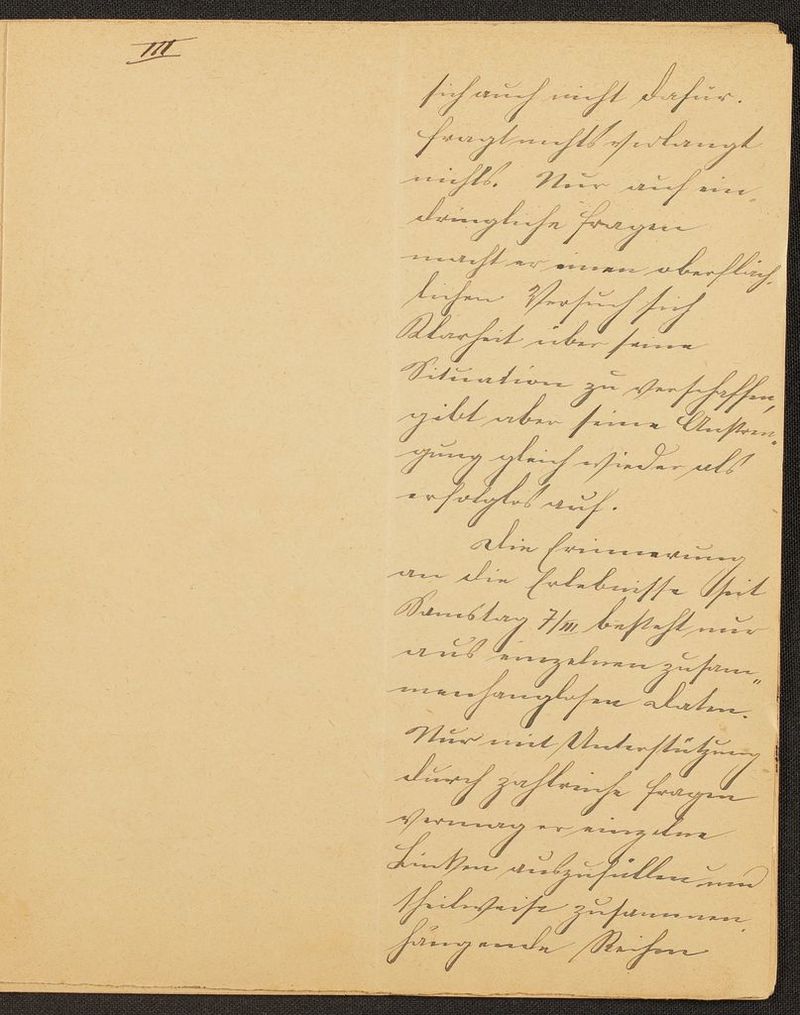 III
sich auch nicht dafür.
fragt nichts verlangt
nichts. Nur auf ein„
dringliche Fragen
macht er einen oberfläch„
lichen Versuch sich
Klarheit über seine
Situation zu verschaffen,
gibt aber seine Anstren„
gung gleich wieder als
erfolglos auf.
Die Erinnerung
an die Erlebnisse seit
Samstag 7/III besteht nur
aus einzelnen zusam„
menhanglosen Daten.
Nur mit Unterstützung
durch zahlreiche Fragen
vermag er einzelne
Lücken auszufüllen und
theilweise zusammen„
hängende Reihen